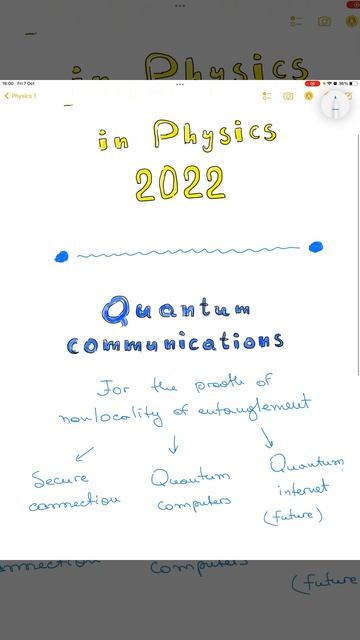 in Physics
16:00 Fri 7 Oct
36%
Physics 1
in Physics
2022
Quantum
communications
For the prooth of
nonlocality of entanglement
Secure
connection
Quantum
computers
Quantum
internet
(future)
computers
(future